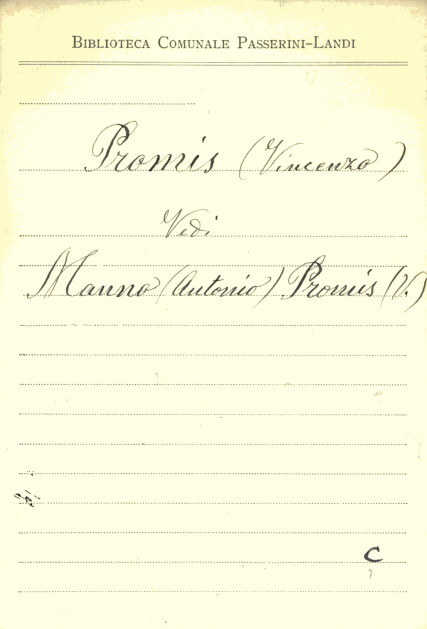 BIBLIOTECA COMUNALE PASSERINI-LANDI
Promis (Vincenzo)
Vedi
Manno (Antonio) Promis (V.)
C